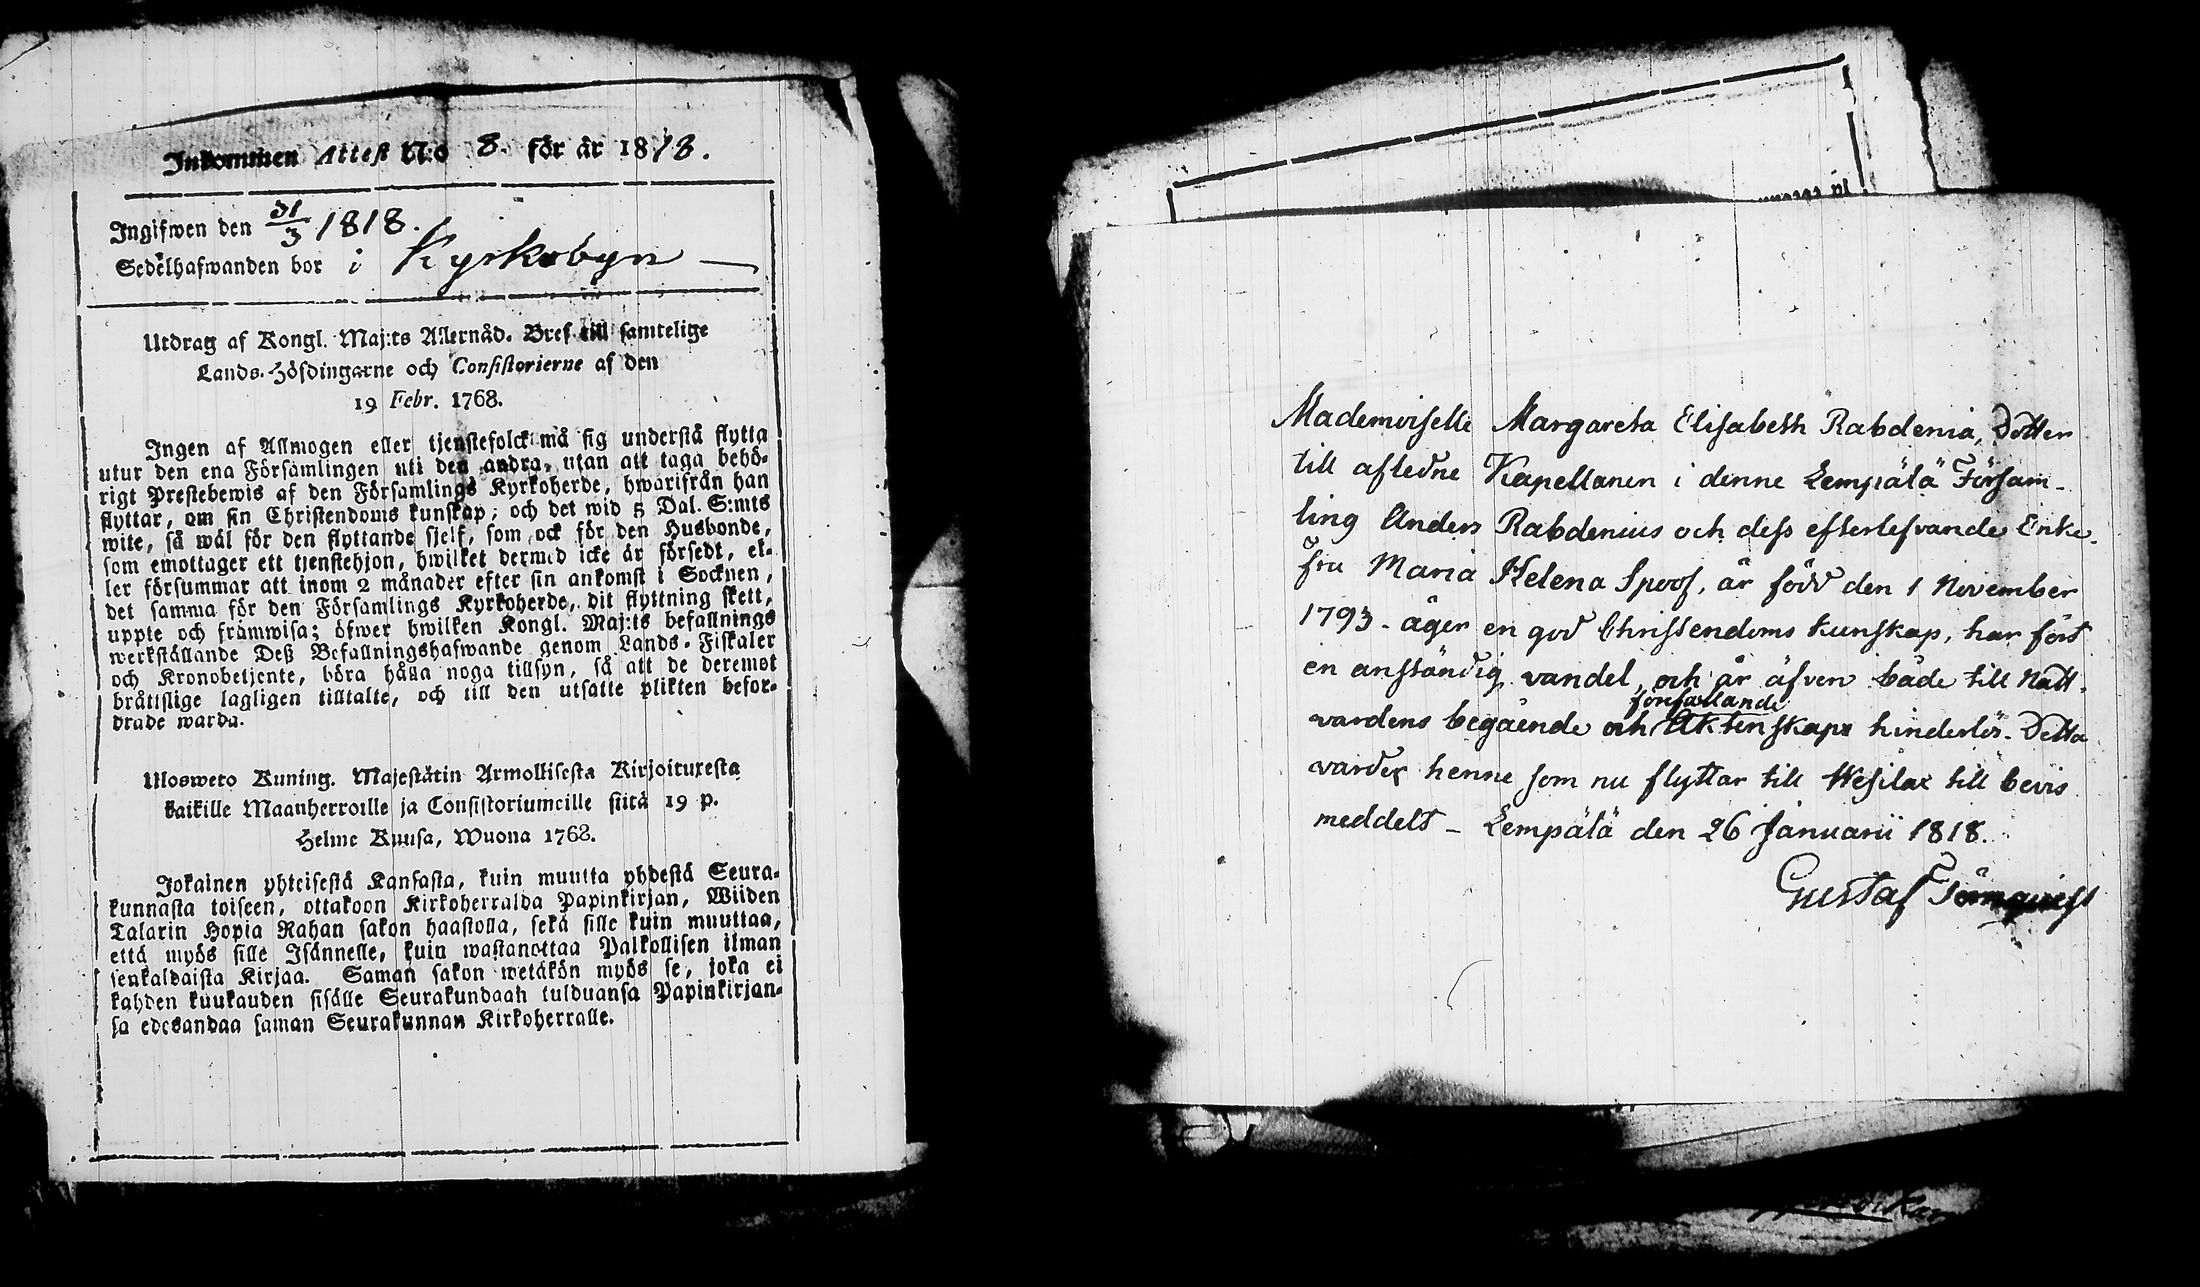 Inkommen Attest N:o 8. för år 1818.
Ingifwen den 31/3 1818.
Sedelhafwanden bor i Kyrkobyn —
Utdrag af Kongl. Maj:ts Allernåd. Bref till samtelige
Lands-Höfdingarne och Consistorierne af den
19 Febr. 1768.
Ingen af Allmogen eller tjenstefolck må sig understå flytta
utur den ena Församlingen uti den andra, utan att taga behö-
rigt Prestebewis af den Församlings Kyrkoherde, hwarifrån han
flyttar, om sin Christendoms kunskap; och det wid 5 Dal. S:mts
wite, så wäl för den flyttande sjelf, som ock för den Husbonde,
som emottager ett tjenstehjon, hwilket dermed icke är försedt, el-
ler försummar att inom 2 månader efter sin ankomst i Socknen,
det samma för den Församlings Kyrkoherde, dit flyttning skett,
uppte och framwisa; öfwer hwilken Kongl. Maj:ts befallnings
werkställande Deß Befallningshafwande genom Lands-Fiskaler
och Kronobetjente, böra hålla noga tillsyn, så att de deremot
bråttslige lagligen tilltalte, och till den utsatte plikten befor-
drade warda.
Ulosweto Kuning. Majestätin Armollisesta Kirjoituxesta
kaikille Maanherroille ja Consistoriumeille siitä 19 p.
Helme Kuusa, Wuona 1768.
Jokainen yhteisestä Kansasta, kuin muutta yhdestä Seura-
kunnasta toiseen, ottakoon Kirkoherralda Papinkirjan, Wiiden
Talarin Hopia Rahan sakon haastolla, sekä sille kuin muuttaa,
että myös sille Isännelle, kuin wastanottaa Palkollisen ilman
senkaldaista Kirjaa. Saman sakon wetäkön myös se, joka ei
kahden kuukauden sisälle Seurakundaah tulduansa Papinkirjan-
sa edesandaa saman Seurakunnan Kirkoherralle.
Mademoiselle Margareta Elisabeth Rabdenia, Dotter
till afledne Kapellanen i denne Lempälä Församl-
ling Anders Rabdenius och dess efterlefvande Enke
Fru Maria Helena Spoof, är född den 1 November
1793 - äger en god Christendoms kunskap, har fört
en anständig vandel, och är äfven både till Natt-
vardens begående och förefallande Äktenskaps hinderlös. Detta
varder henne som nu flyttar till Wesilax till bevis
meddelt - Lempälä den 26 Januarii 1818.
Gustaf Törnquist